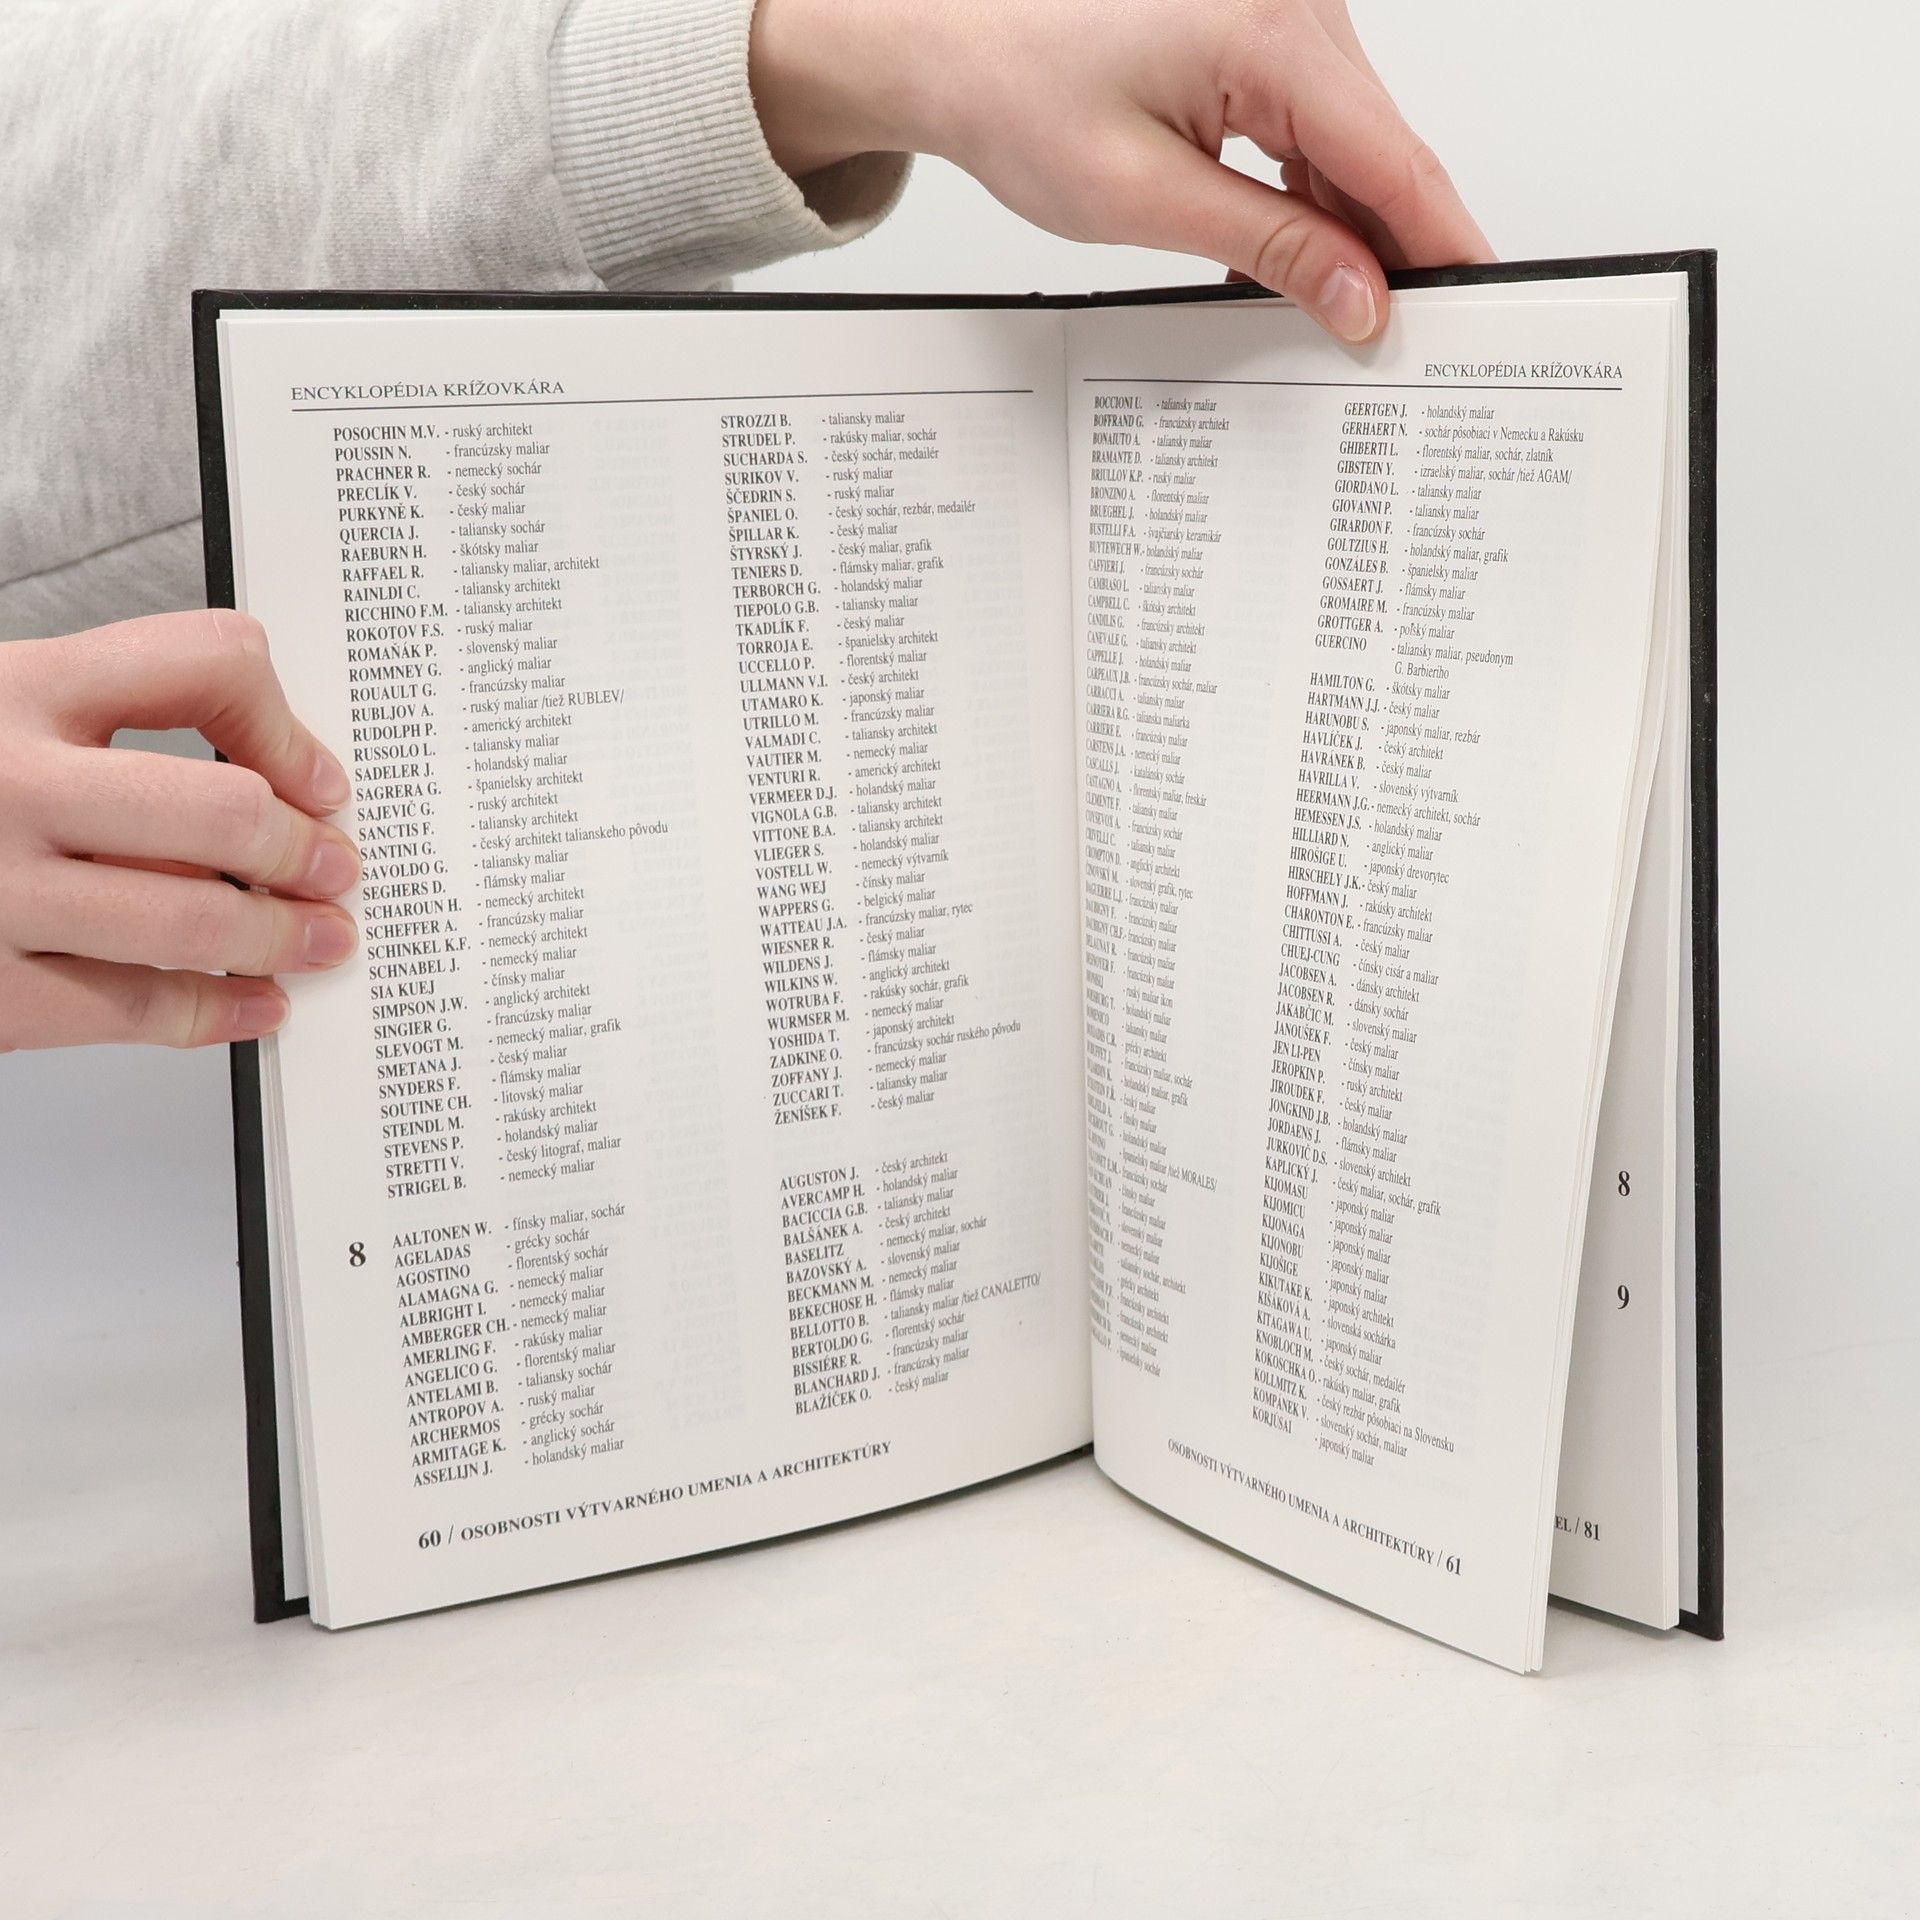 ENCYKLOPÉDIA KRÍŽOVKÁRA
POSOCHIN M.V. - ruský architekt
POUSSIN N. - francúzsky maliar
PRACHNER R. - nemecký sochár
PRECLÍK V. - český sochár
PURKYNĚ K. - český maliar
QUERCIA J. - taliansky sochár
RAEBURN H. - škótsky maliar
RAFFAEL R. - taliansky maliar, architekt
RAINLDI C. - taliansky architekt
RICCHINO F.M. - taliansky architekt
ROKOTOV F.S. - ruský maliar
ROMAŇÁK P. - slovenský maliar
ROMMNEY G. - anglický maliar
ROUAULT G. - francúzsky maliar
RUBLJOV A. - ruský maliar /tiež RUBLEV/
RUDOLPH P. - americký architekt
RUSSOLO L. - taliansky maliar
SADELER J. - holandský maliar
SAGRERA G. - španielsky architekt
SAJEVIČ G. - ruský architekt
SANCTIS F. - taliansky architekt
SANTINI G. - český architekt talianskeho pôvodu
SAVOLDO G. - taliansky maliar
SEGHERS D. - flámsky maliar
SCHAROUN H. - nemecký architekt
SCHEFFER A. - francúzsky maliar
SCHINKEL K.F. - nemecký architekt
SCHNABEL J. - nemecký maliar
SIA KUEJ - čínsky maliar
SIMPSON J.W. - anglický architekt
SINGIER G. - francúzsky maliar
SLEVOGT M. - nemecký maliar, grafik
SMETANA J. - český maliar
SNYDERS F. - flámsky maliar
SOUTINE CH. - litovský maliar
STEINDL M. - rakúsky architekt
STEVENS P. - holandský maliar
STRETTI V. - český litograf, maliar
STRIGEL B. - nemecký maliar
8
AALTONEN W. - fínsky maliar, sochár
AGELADAS - grécky sochár
AGOSTINO - florentský sochár
ALAMAGNA G. - nemecký maliar
ALBRIGHT I. - nemecký maliar
AMBERGER CH. - nemecký maliar
AMERLING F. - rakúsky maliar
ANGELICO G. - florentský maliar
ANTELAMI B. - taliansky sochár
ANTROPOV A. - ruský maliar
ARCHERMOS - grécky sochár
ARMITAGE K. - anglický sochár
ASSELIJN J. - holandský maliar
STROZZI B. - taliansky maliar
STRUDEL P. - rakúsky maliar, sochár
SUCHARDA S. - český sochár, medailér
SURIKOV V. - ruský maliar
ŠČEDRIN S. - ruský maliar
ŠPANIEL O. - český sochár, rezbár, medailér
ŠPILLAR K. - český maliar
ŠTYRSKÝ J. - český maliar, grafik
TENIERS D. - flámsky maliar, grafik
TERBORCH G. - holandský maliar
TIEPOLO G.B. - taliansky maliar
TKADLÍK F. - český maliar
TORROJA E. - španielsky architekt
UCCELLO P. - florentský maliar
ULLMANN V.I. - český architekt
UTAMARO K. - japonský maliar
UTRILLO M. - francúzsky maliar
VALMADI C. - taliansky architekt
VAUTIER M. - nemecký maliar
VENTURI R. - americký architekt
VERMEER D.J. - holandský maliar
VIGNOLA G.B. - taliansky architekt
VITTONE B.A. - taliansky architekt
VLIEGER S. - holandský maliar
VOSTELL W. - nemecký výtvarník
WANG WEJ - čínsky maliar
WAPPERS G. - belgický maliar
WATTEAU J.A. - francúzsky maliar, rytec
WIESNER R. - český maliar
WILDENS J. - flámsky maliar
WILKINS W. - anglický architekt
WOTRUBA F. - rakúsky sochár, grafik
WURMSER M. - nemecký maliar
YOSHIDA T. - japonský architekt
ZADKINE O. - francúzsky sochár ruského pôvodu
ZOFFANY J. - nemecký maliar
ZUCCARI T. - taliansky maliar
ŽENÍŠEK F. - český maliar
AUGUSTON J. - český architekt
AVERCAMP H. - holandský maliar
BACICCIA G.B. - taliansky maliar
BALŠÁNEK A. - český architekt
BASELITZ - nemecký maliar, sochár
BAZOVSKÝ A. - slovenský maliar
BECKMANN M. - nemecký maliar
BEKECHOSE H. - flámsky maliar
BELLOTTO B. - taliansky maliar /tiež CANALETTO/
BERTOLDO G. - florentský sochár
BISSIÉRE R. - francúzsky maliar
BLANCHARD J. - francúzsky maliar
BLAŽÍČEK O. - český maliar
60 / OSOBNOSTI VÝTVARNÉHO UMENIA A ARCHITEKTÚRY
ENCYKLOPÉDIA KRÍŽOVKÁRA
BOCCIONI U. - taliansky maliar
BOFFRAND G. - francúzsky architekt
BONAIUTO A. - taliansky maliar
BRAMANTE D. - taliansky architekt
BRIULLOV K.P. - ruský maliar
BRONZINO A. - florentský maliar
BRUEGHEL J. - holandský maliar
BUSTELLI F.A. - švajčiarsky keramikár
BUYTEWECH W.- holandský maliar
CAFFIERI J. - francúzsky sochár
CAMBIASO L. - taliansky maliar
CAMPBELL C. - škótsky architekt
CANDILIS G. - francúzsky architekt
CANEVALE G. - taliansky architekt
CAPPELLE J. - holandský maliar
CARPEAUX J.B. - francúzsky sochár, maliar
CARRACCI A. - taliansky maliar
CARRIERA R.G. - talianska maliarka
CARRIERE E. - francúzsky maliar
CARSTENS J.A. - nemecký maliar
CASCALLS J. - katalánsky sochár
CASTAGNO A. - florentský maliar, freskár
CLEMENTE F. - taliansky maliar
COYSEVOX A. - francúzsky sochár
CRIVELLI C. - taliansky maliar
CROMPTON D. - anglický architekt
CINOVSKÝ M. - slovenský grafik, rytec
DAGUERRE L.J. - francúzsky maliar
DAUBIGNY F. - francúzsky maliar
DAUBIGNY CH.F.- francúzsky maliar
DELAUNAY R. - francúzsky maliar
- francúzsky maliar
- ruský maliar ikon
- holandský maliar
- taliansky maliar
- grécky architekt
- francúzsky maliar, sochár
- holandský maliar, grafik
- český maliar
- fínsky maliar
- holandský maliar
- španielsky maliar /tiež MORALES/
- francúzsky sochár
- čínsky maliar
- francúzsky maliar
- slovenský maliar
- nemecký maliar
- taliansky sochár, architekt
- grécky architekt
- francúzsky architekt
- francúzsky architekt
- nemecký maliar
- španielsky sochár
GEERTGEN J. - holandský maliar
GERHAERT N. - sochár pôsobiaci v Nemecku a Rakúsku
GHIBERTI L. - florentský maliar, sochár, zlatník
GIBSTEIN Y. - izraelský maliar, sochár /tiež AGAM/
GIORDANO L. - taliansky maliar
GIOVANNI P. - taliansky maliar
GIRARDON F. - francúzsky sochár
GOLTZIUS H. - holandský maliar, grafik
GONZÁLES B. - španielsky maliar
GOSSAERT J. - flámsky maliar
GROMAIRE M. - francúzsky maliar
GROTTGER A. - poľský maliar
GUERCINO - taliansky maliar, pseudonym
G. Barbieriho
HAMILTON G. - škótsky maliar
HARTMANN J.J. - český maliar
HARUNOBU S. - japonský maliar, rezbár
HAVLÍČEK J. - český architekt
HAVRÁNEK B. - český maliar
HAVRILLA V. - slovenský výtvarník
HEERMANN J.G.- nemecký architekt, sochár
HEMESSEN J.S. - holandský maliar
HILLIARD N. - anglický maliar
HIROŠIGE U. - japonský drevorytec
HIRSCHELY J.K.- český maliar
HOFFMANN J. - rakúsky architekt
CHARONTON E. - francúzsky maliar
CHITTUSSI A. - český maliar
CHUEJ-CUNG - čínsky cisár a maliar
JACOBSEN A. - dánsky architekt
JACOBSEN R. - dánsky sochár
JAKABČIC M. - slovenský maliar
JANOUŠEK F. - český maliar
JEN LI-PEN - čínsky maliar
JEROPKIN P. - ruský architekt
JIROUDEK F. - český maliar
JONGKIND J.B. - holandský maliar
JORDAENS J. - flámsky maliar
JURKOVIČ D.S. - slovenský architekt
KAPLICKÝ J. - český maliar, sochár, grafik
KIJOMASU - japonský maliar
KIJOMICU - japonský maliar
KIJONAGA - japonský maliar
KIJONOBU - japonský maliar
KIJOŠIGE - japonský maliar
KIKUTAKE K. - japonský architekt
KIŠÁKOVÁ A. - slovenská sochárka
KITAGAWA U. - japonský maliar
KNOBLOCH M. - český sochár, medailér
KOKOSCHKA O.- rakúsky maliar, grafik
KOLLMITZ K. - český rezbár pôsobiaci na Slovensku
KOMPÁNEK V. - slovenský sochár, maliar
KORJUSAI - japonský maliar
OSOBNOSTI VÝTVARNÉHO UMENIA A ARCHITEKTÚRY / 61
8
9
EL / 81